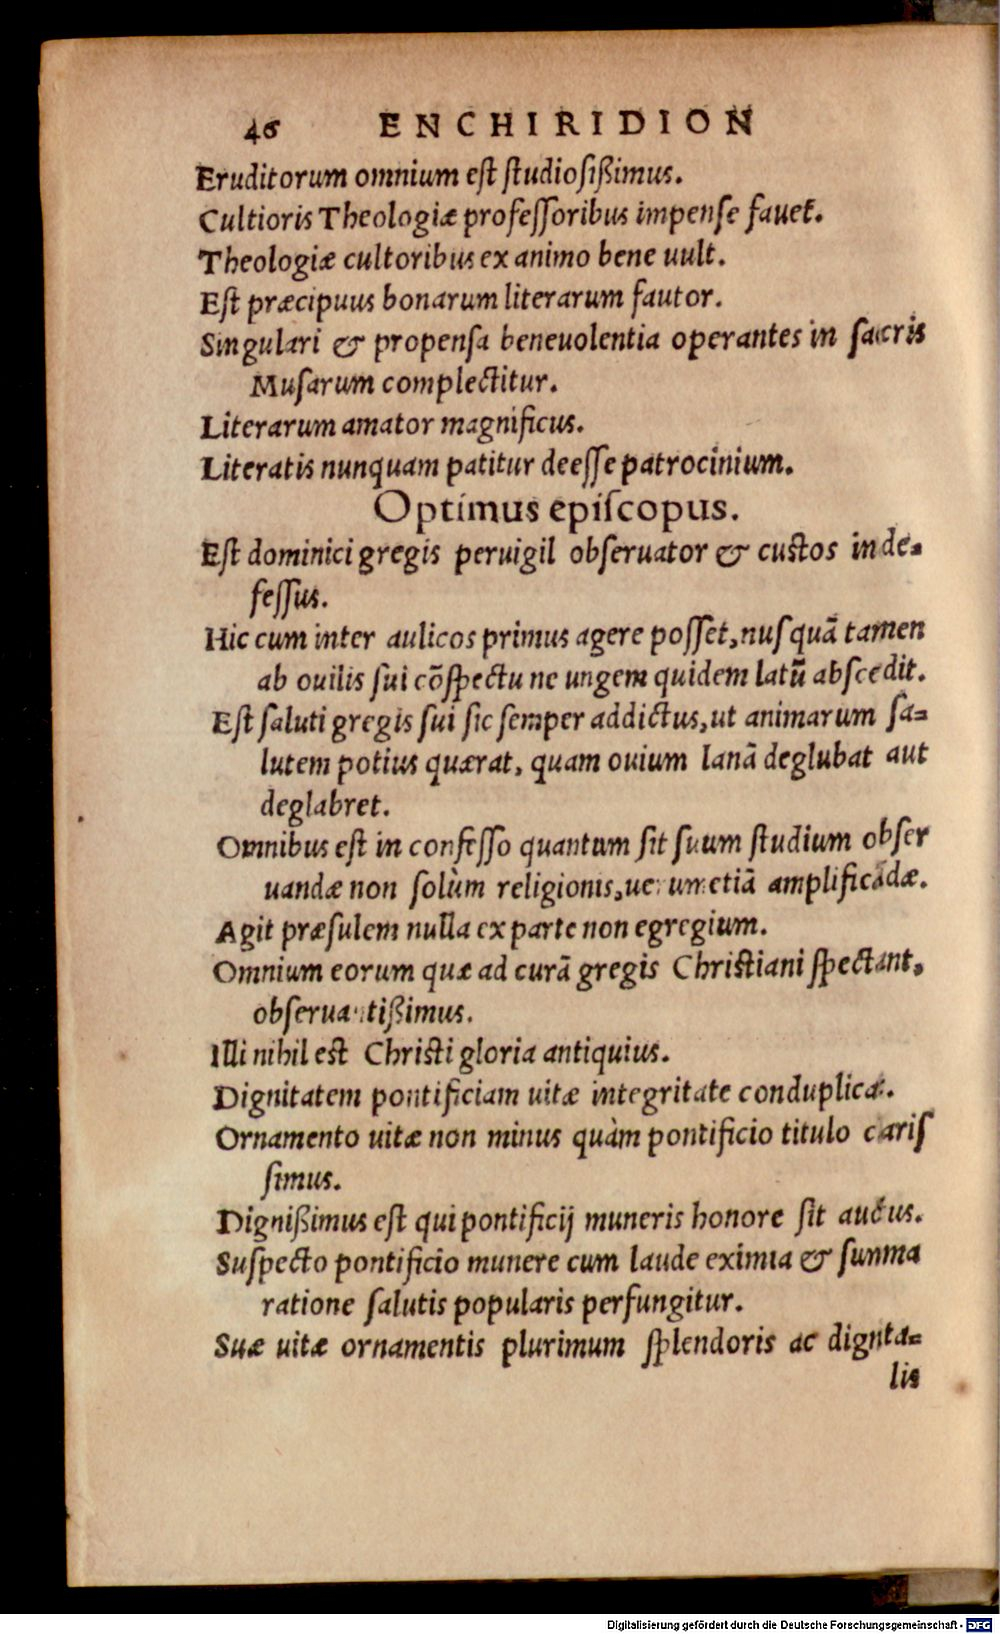 46 ENCHIRIDION
Eruditorum omnium eſt ſtudioſißimus.
Cultioris Theologiæ profeſſoribus impenſe favet.
Theologiæ cultoribus ex animo bene uult.
Eſt præcipuus bonarum literarum fautor.
Singulari & propenſa beneuolentia operantes in ſacris
Muſarum complectitur.
Literarum amator magnificus.
Literatis nunquam patitur deeſſe patrocinium.
Optimus epiſcopus.
Eſt dominici gregis peruigil obſeruator & cuſtos inde-
feſſus.
Hic cum inter aulicos primus agere poſſet, nuſquã tamen
ab ouilis ſui cõſpectu ne ungem quidem latũ abſcedit.
Eſt ſaluti gregis ſui ſic ſemper addictus, ut animarum ſa-
lutem potius quærat, quam ouium lanã deglubat aut
deglabret.
Omnibus eſt in confeſſo quantum ſit ſuum ſtudium obſer
uandæ non ſolùm religionis, uerum etiã amplificãdæ.
Agit præſulem nulla ex parte non egregium.
Omnium eorum quæ ad curã gregis Chriſtiani ſpectant,
obſeruantißimus.
Illi nihil eſt Chriſti gloria antiquius.
Dignitatem pontificiam uitæ integritate conduplicat.
Ornamento uitæ non minus quàm pontificio titulo cariſ
ſimus.
Dignißimus eſt qui pontificij muneris honore ſit auctus.
Suſpecto pontificio munere cum laude eximia & summa
ratione ſalutis popularis perfungitur.
Suæ uitæ ornamentis plurimum ſplendoris ac dignita-
lis
Digitalisierung gefördert durch die Deutsche Forschungsgemeinschaft - DFG